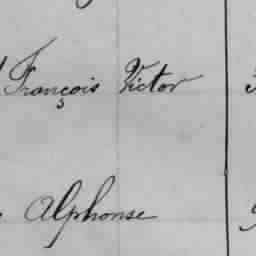 François Victor
Alphonse